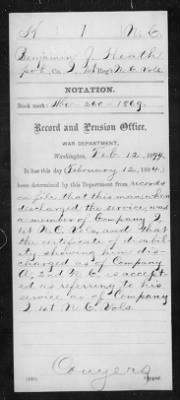 H 1 N.C.
Benjamin J. Heath
pvt, Co. I, 1st Reg't N.C. Vols.
NOTATION.
Book mark: 260-1869
Record and Pension Office,
WAR DEPARTMENT,
Washington, Feb. 12, 1894.
It has this day (February 12, 1894.)
been determined by this Department from records
on file that this man when
discharged the service, was
a member of Company I,
1st N.C. Vols, and that
the certificate of disabil-
ity showing him dis-
charged as of Company
A, 2nd N.C. is accept-
ed as referring to his
service as of Company
I, 1st N.C. Vols.
Conyers
Copyist.